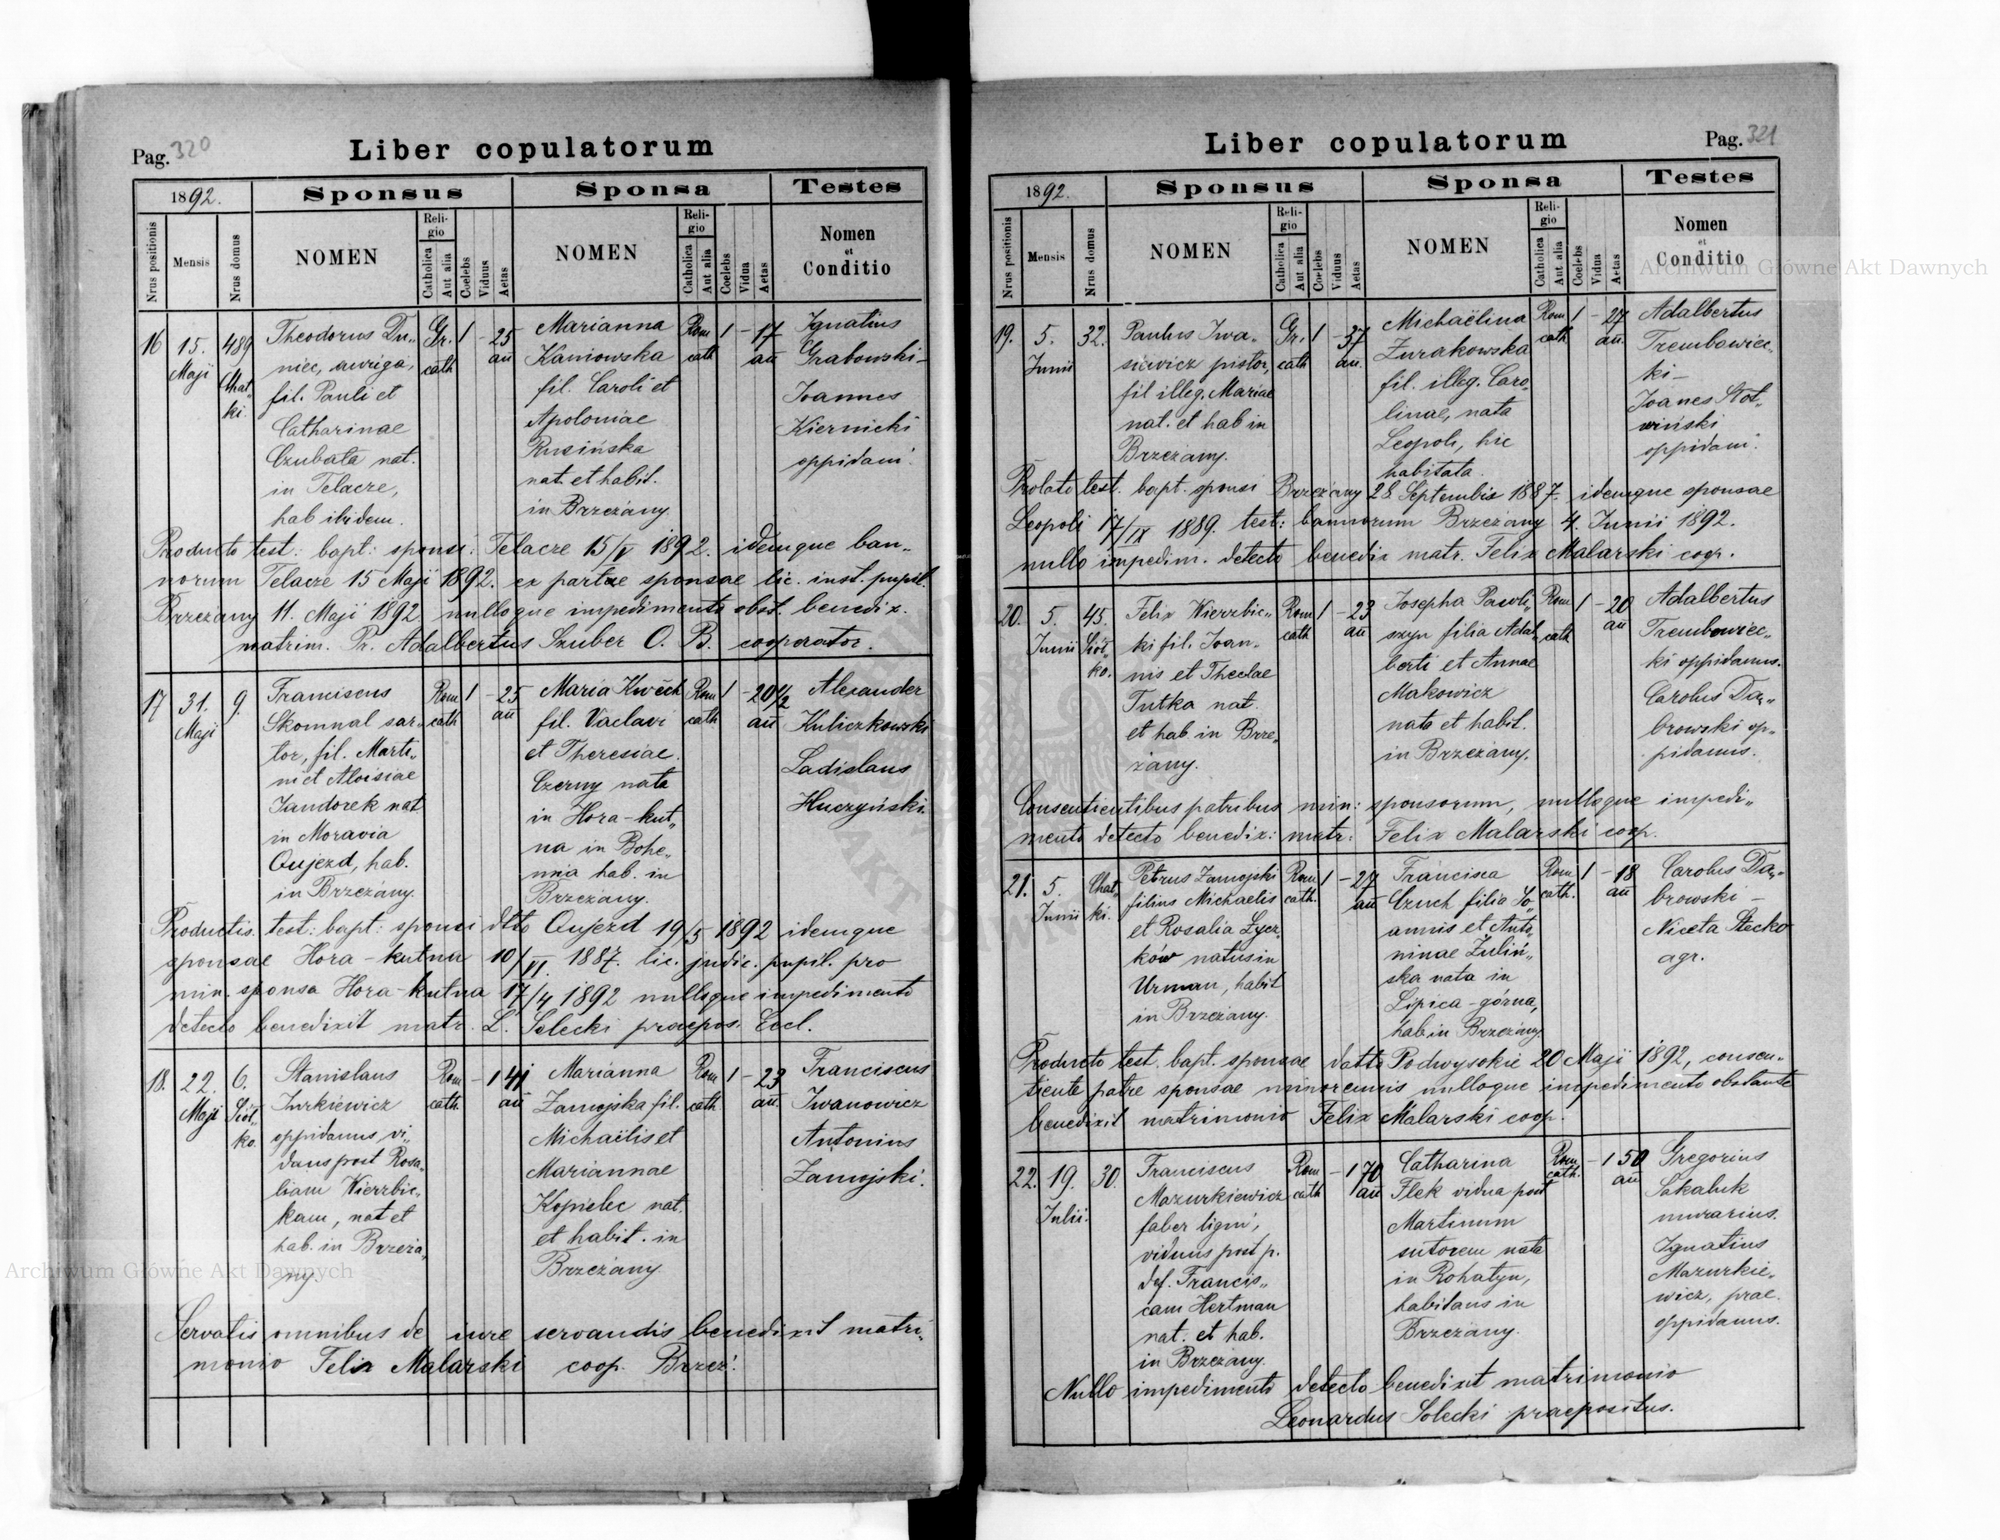 Pag. 320
Liber copulatorum
1892.
Sponsus
Sponsa
Testes
Nrus positionis
Mensis
Nrus domus
NOMEN
Religio
Catholica
Aut alia
Coelebs
Viduus
Aetas
NOMEN
Religio
Catholica
Aut alia
Coelebs
Vidua
Aetas
Nomen
et
Conditio
16
15.
Maji
489
Chat„
ki.
Theodorus Du„
niec, auriga,
fil. Pauli et
Catharinae
Czubata nat.
in Telacze,
hab ibidem.
Gr.
cath
1
-
25
an
Marianna
Kaniowska
fil. Caroli et
Apoloniae
Rusińska
nat. et habit.
in Brzeżany
Rom
cath
1
-
17
an
Ignatius
Grabowski -
Joannes
Kiernicki
oppidani.
Producto test: bapt: sponsi: Telacze 15/V 1892. idemque ban„
norum Telacze 15 Maji 1892. ex partae sponsae lic. inst. pupil.
Brzeżany 11. Maji 1892 nulloque impedimento obst. benedix.
matrim. Pr. Adalbertus Szuber O. B. cooperator.
17
31.
Maji
9.
Franciscus
Skomnal sar„
tor, fil. Marti„
ni et Aloisiae
Jandorek nat
in Moravia
Oujezd, hab.
in Brzeżany.
Rom
cath
1
-
25
an
Maria Kwěch
fil. Vaclavi
et Theresiae
Czerny nata
in Hora-kut„
na in Bohe„
mia hab. in
Brzeżany.
Rom
cath
1
-
20 1/2
an
Alexander
Kuliczkowski
Ladislaus
Huczyński.
Productis. test: bapt: sponsi dtto Oujezd 19/5 1892 idemque
sponsae Hora-kutna 10/VI. 1887. lic. judic. pupil. pro
min. sponsa Hora-kutna 17/4 1892 nulloque impedimento
detecto benedixit matr. L. Solecki praepos. Eccl.
18.
22.
Maji
6.
Siół„
ko.
Stanislaus
Jurkiewicz
oppidanus vi„
duus post Rosa„
liam Wierzbic„
kam, nat et
hab. in Brzeża„
ny
Rom
cath
-
1
41
an
Marianna
Zamojska fil.
Michaëlis et
Mariannae
Kopielec nat.
et habit. in
Brzeżany.
Rom
cath
1
-
23
an.
Franciscus
Iwanowicz
Antonius
Zamojski.
Servatis omnibus de iure servandis benedixit matri„
monio Felix Malarski coop. Brzeż:
Liber copulatorum
Pag. 321
1892.
Sponsus
Sponsa
Testes
Nrus positionis
Mensis
Nrus domus
NOMEN
Religio
Catholica
Aut alia
Coelebs
Viduus
Aetas
NOMEN
Religio
Catholica
Aut alia
Coelebs
Vidua
Aetas
Nomen
et
Conditio
19.
5.
Junii
32.
Paulus Iwa„
siewicz pistor,
fil illeg. Mariae
nat. et hab in
Brzeżany.
Gr.
cath
1
-
37
an.
Michaëlina
Żurakowska
fil. illeg. Caro„
linae, nata
Leopoli, hic
habitata.
Rom
cath
1
-
27
an.
Adalbertus
Trembowiec„
ki -
Joanes Slot„
wiński
oppidani.
Prolato test. bapt. sponsi Brzeżany 28 Septembis 1887. idemque sponsae
Leopoli 17/IX 1889. test: bannorum Brzeżany 4. Junii 1892.
nullo impedim. detecto benedix matr. Felix Malarski coop.
20.
5.
Junii
45.
Siół„
ko.
Felix Wierzbic„
ki fil. Joan„
nis et Theclae
Tutka nat.
et hab. in Brze„
żany.
Rom
cath
1
-
23
an
Josepha Pawli„
szyn filia Adal„
berti et Annae
Makowicz
nata et habit.
in Brzeżany.
Rom
cath
1
-
20
an
Adalbertus
Trembowiec„
ki oppidanus.
Carolus Da„
browski op„
pidanus.
Consentientibus patribus min: sponsorum, nulloque impedi„
mento detecto benedix: matr: Felix Malarski coop.
21.
5.
Junii
Chat
ki.
Petrus Zamojski
filius Michaelis
et Rosalia Łycz„
ków natus in
Urman, habit
in Brzeżany.
Rom
cath.
1
-
27
an
Francisca
Czuch filia Jo„
annis et Anto„
ninae Żuliń„
ska nata in
Lipica-górna,
hab in Brzeżany.
Rom
cath.
1
-
18
an
Carolus Da„
browski -
Niceta Stecko
agr.
Producto test. bapt. sponsae datto Podwysokie 20 Maji 1892, consen„
tiente patre sponsae minorennis nulloque impedimento obstante
benedixit matrimonio Felix Malarski coop.
22.
19.
Julii.
30.
Franciscus
Mazurkiewicz
faber lign.,
viduus post p.
def. Francis„
cam Hertman
nat. et hab.
in Brzeżany.
Rom
cath
-
1
70
an
Catharina
Flek vidua post
Martinum
sutorem nata
in Rohatyn,
habitans in
Brzeżany.
Rom
cath.
-
1
50
an
Gregorius
Sakaluk
murarius.
Ignatius
Mazurkie„
wicz, prae.
oppidanus.
Nullo impedimento detecto benedixit matrimonio
Leonardus Solecki praepositus.
Archiwum Główne Akt Dawnych
Archiwum Główne Akt Dawnych